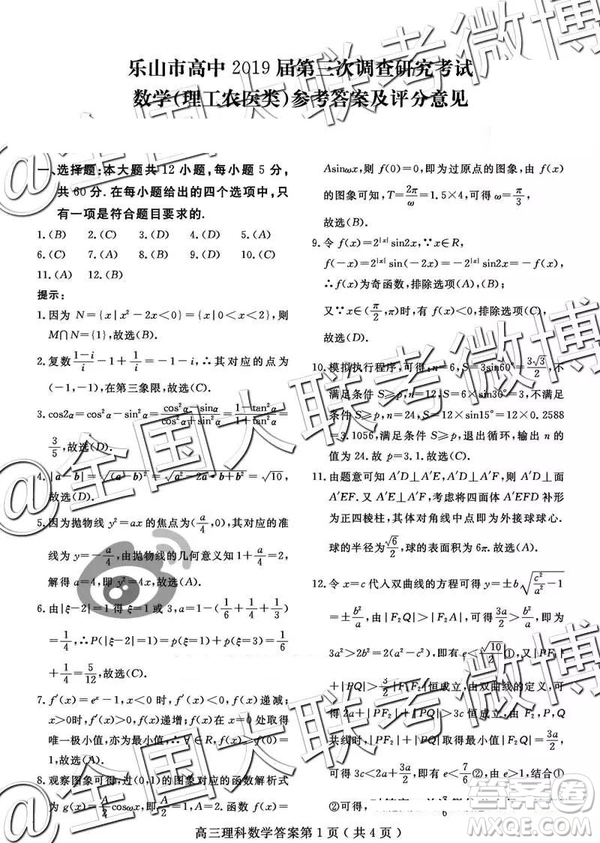 乐山市高中 2019 届第三次调查研究考试
数学(理工农医类)参考答案及评分意见
一、选择题:本大题共 12 小题,每小题 5 分,
共 60 分.在每小题给出的四个选项中,只
有一项是符合题目要求的.
1.(B) 2.(C) 3.(D) 4.(D) 5.(A)
6.(C) 7.(A) 8.(B) 9.(D) 10.(C)
11.(A) 12.(B)
提示:
1.因为 N={x|x²-2x<0}={x|0<x<2},则
M∩N={1},故选(B).
2.复数(1-i)/i-1+1/i-1=-1-i,其对应的点为
(-1,-1),在第三象限,故选(C).
3.cos2α=cos²α-sin²α=(cos²α-sin²α)/(cos²α+sin²α)=(1-tan²α)/(1+tan²α)=
3/5,故选(D).
4.|a-b|=√(a-b)²=√(a²-2a·b+b²)=√10,
故选(D).
5.因为抛物线 y²=ax 的焦点为(a/4,0),其对应的准
线为 x=-a/4,由抛物线的几何意义可知 1+a/4=2,
解得 a=4,即 y²=4x.故选(A).
6.由|ξ-2|=1 得 ξ=1 或 3,a=1-(1/6+1/4+1/3)
=1/4,∴P(|ξ-2|=1)=p(ξ=1)+p(ξ=3)=1/6
+1/4=5/12,故选(C).
7.f′(x)=eˣ-1,x<0 时,f(x)递减;
x>0时,f′(x)>0,f(x)递增;f(x)在x=0处取得
唯一极小值,亦为最小值,
8.观察图象可得,过(0,1)的图象对应的函数解析式
Asinωx,则 f(0)=0,即为过原点的图象,由 f(x)
的图象可知,T=2π/ω=1.5×4,可得 ω=π/3,
故选(B).
9.令 f(x)=2^|x| sin2x,∵x∈R,
f(-x)=2^|-x| sin(-2x)=-2^|x| sin2x=-f(x),
∴f(x)为奇函数,排除选项(A),(B);
又∵x∈(π/2,π)时,f(x)<0,排除选项(C),
故选(D).
10.模拟执行程序,可得:n=6,S=3sin60°=3√3/2,不
满足条件 S≥p,n=12,S=6×sin30°=3,不满足
条件 S≥p,n=24,S=12×sin15°=12×0.2588
=3.1056,满足条件 S≥p,退出循环,输出 n 的
值为 24.故 p=3.1.故选(C).
11.由题意可知 A′D⊥A′E,A′D⊥A′F,A′D⊥面
A′EF.又 A′E⊥A′F,考虑将四面体 A′EFD 补形
为正四棱柱,其体对角线中点即为外接球球心.
球的半径为√6/2,球的表面积为 6π.故选(A).
12.令 x=c 代入双曲线的方程可得 y=±b√(c²/a²-1)
=±b²/a,由|F₂Q|>|F₂A|,可得
3a²>2b²=2(c²-a²),即有 e<√10/2①,又|PF₁|
+|PQ|>3/2|F₁F₂|恒成立,由双曲线的定义,可
得 2a+|PF₂|+|PQ|>3c 恒成立,由 F₂,P,Q
共线时,|PF₂|+|PQ|取得最小值|F₂Q|=3a/2,
可得 3c<2a+3a/2,即有 e<7/6②,由 e>1,结合①
②可得,
高三理科数学答案第 1 页(共 4 页)
@全国大联考微博
@全国大联考微博